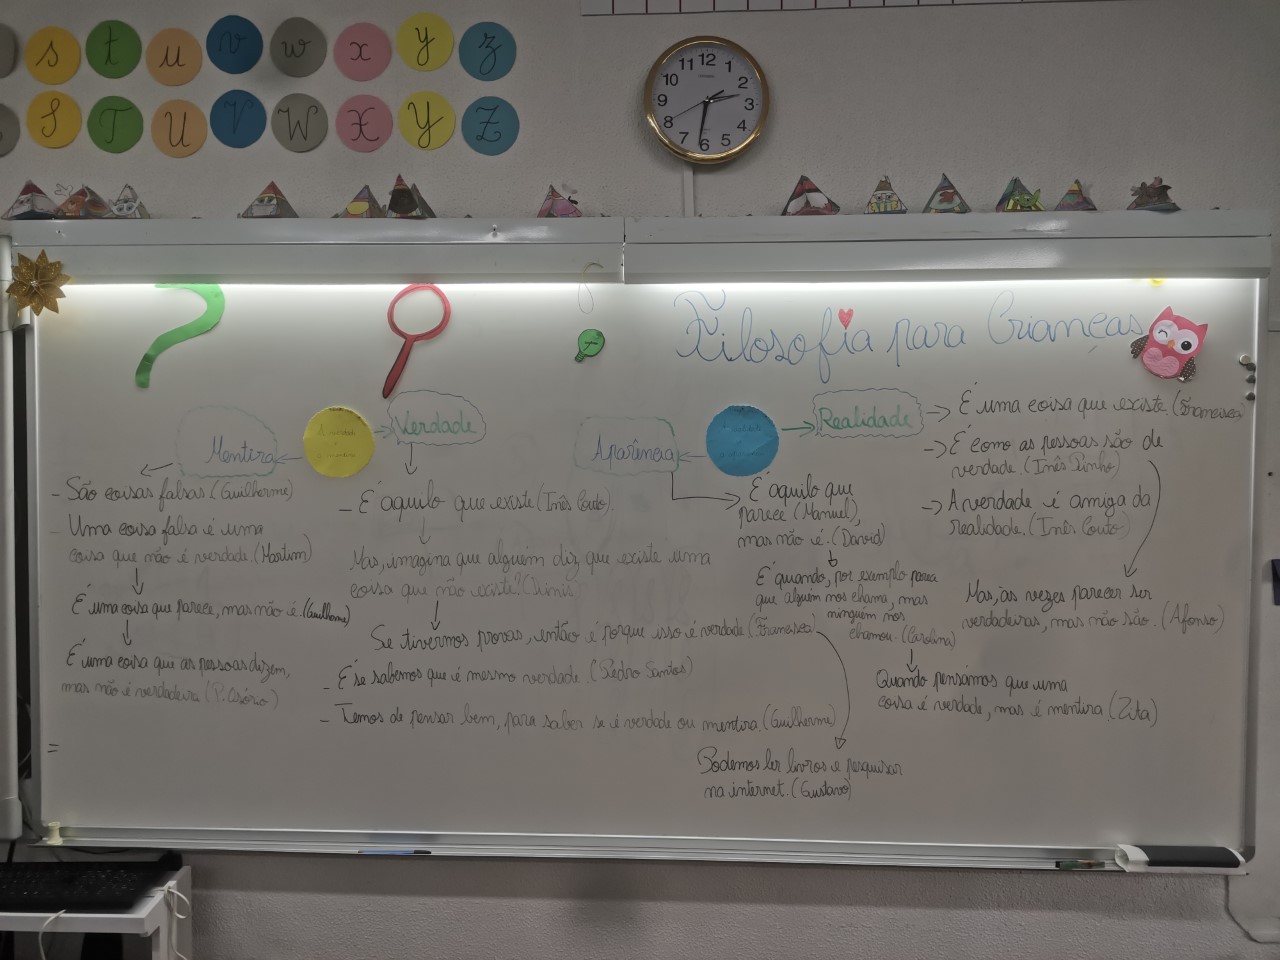 s t u v w x y z
S T U V W X Y Z
12 1 2 3 4 5 6 7 8 9 10 11
Filosofia para Crianças
Mentira
Verdade
Aparência
Realidade
- São coisas falsas (Guilherme)
- Uma coisa falsa é uma
coisa que não é verdade. (Martim)
É uma coisa que parece, mas não é. (Guilherme)
É uma coisa que as pessoas dizem,
mas não é verdadeira (P. Osório)
=
- É aquilo que existe (Inês Couto).
Mas, imagina que alguém diz que existe uma
coisa que não existe?
Se tivermos provas, então é porque isso é verdade (Francisca)
- É se sabemos que é mesmo verdade. (Pedro Santos)
- Temos de pensar bem, para saber se é verdade ou mentira. (Guilherme)
Podemos ler livros e pesquisar
na internet. (Gustavo)
É aquilo que
parece (Manuel),
mas não é. (David)
É quando, por exemplo parece
que alguém nos chama, mas
ninguém nos
chamou. (Carolina)
Quando pensamos que uma
coisa é verdade, mas é mentira. (Zita)
É uma coisa que existe (Francisca)
É como as pessoas são de
verdade. (Inês Pinho)
A verdade é amiga da
realidade. (Inês Couto)
Mas, às vezes parecer ser
verdadeiras, mas não são. (Afonso)